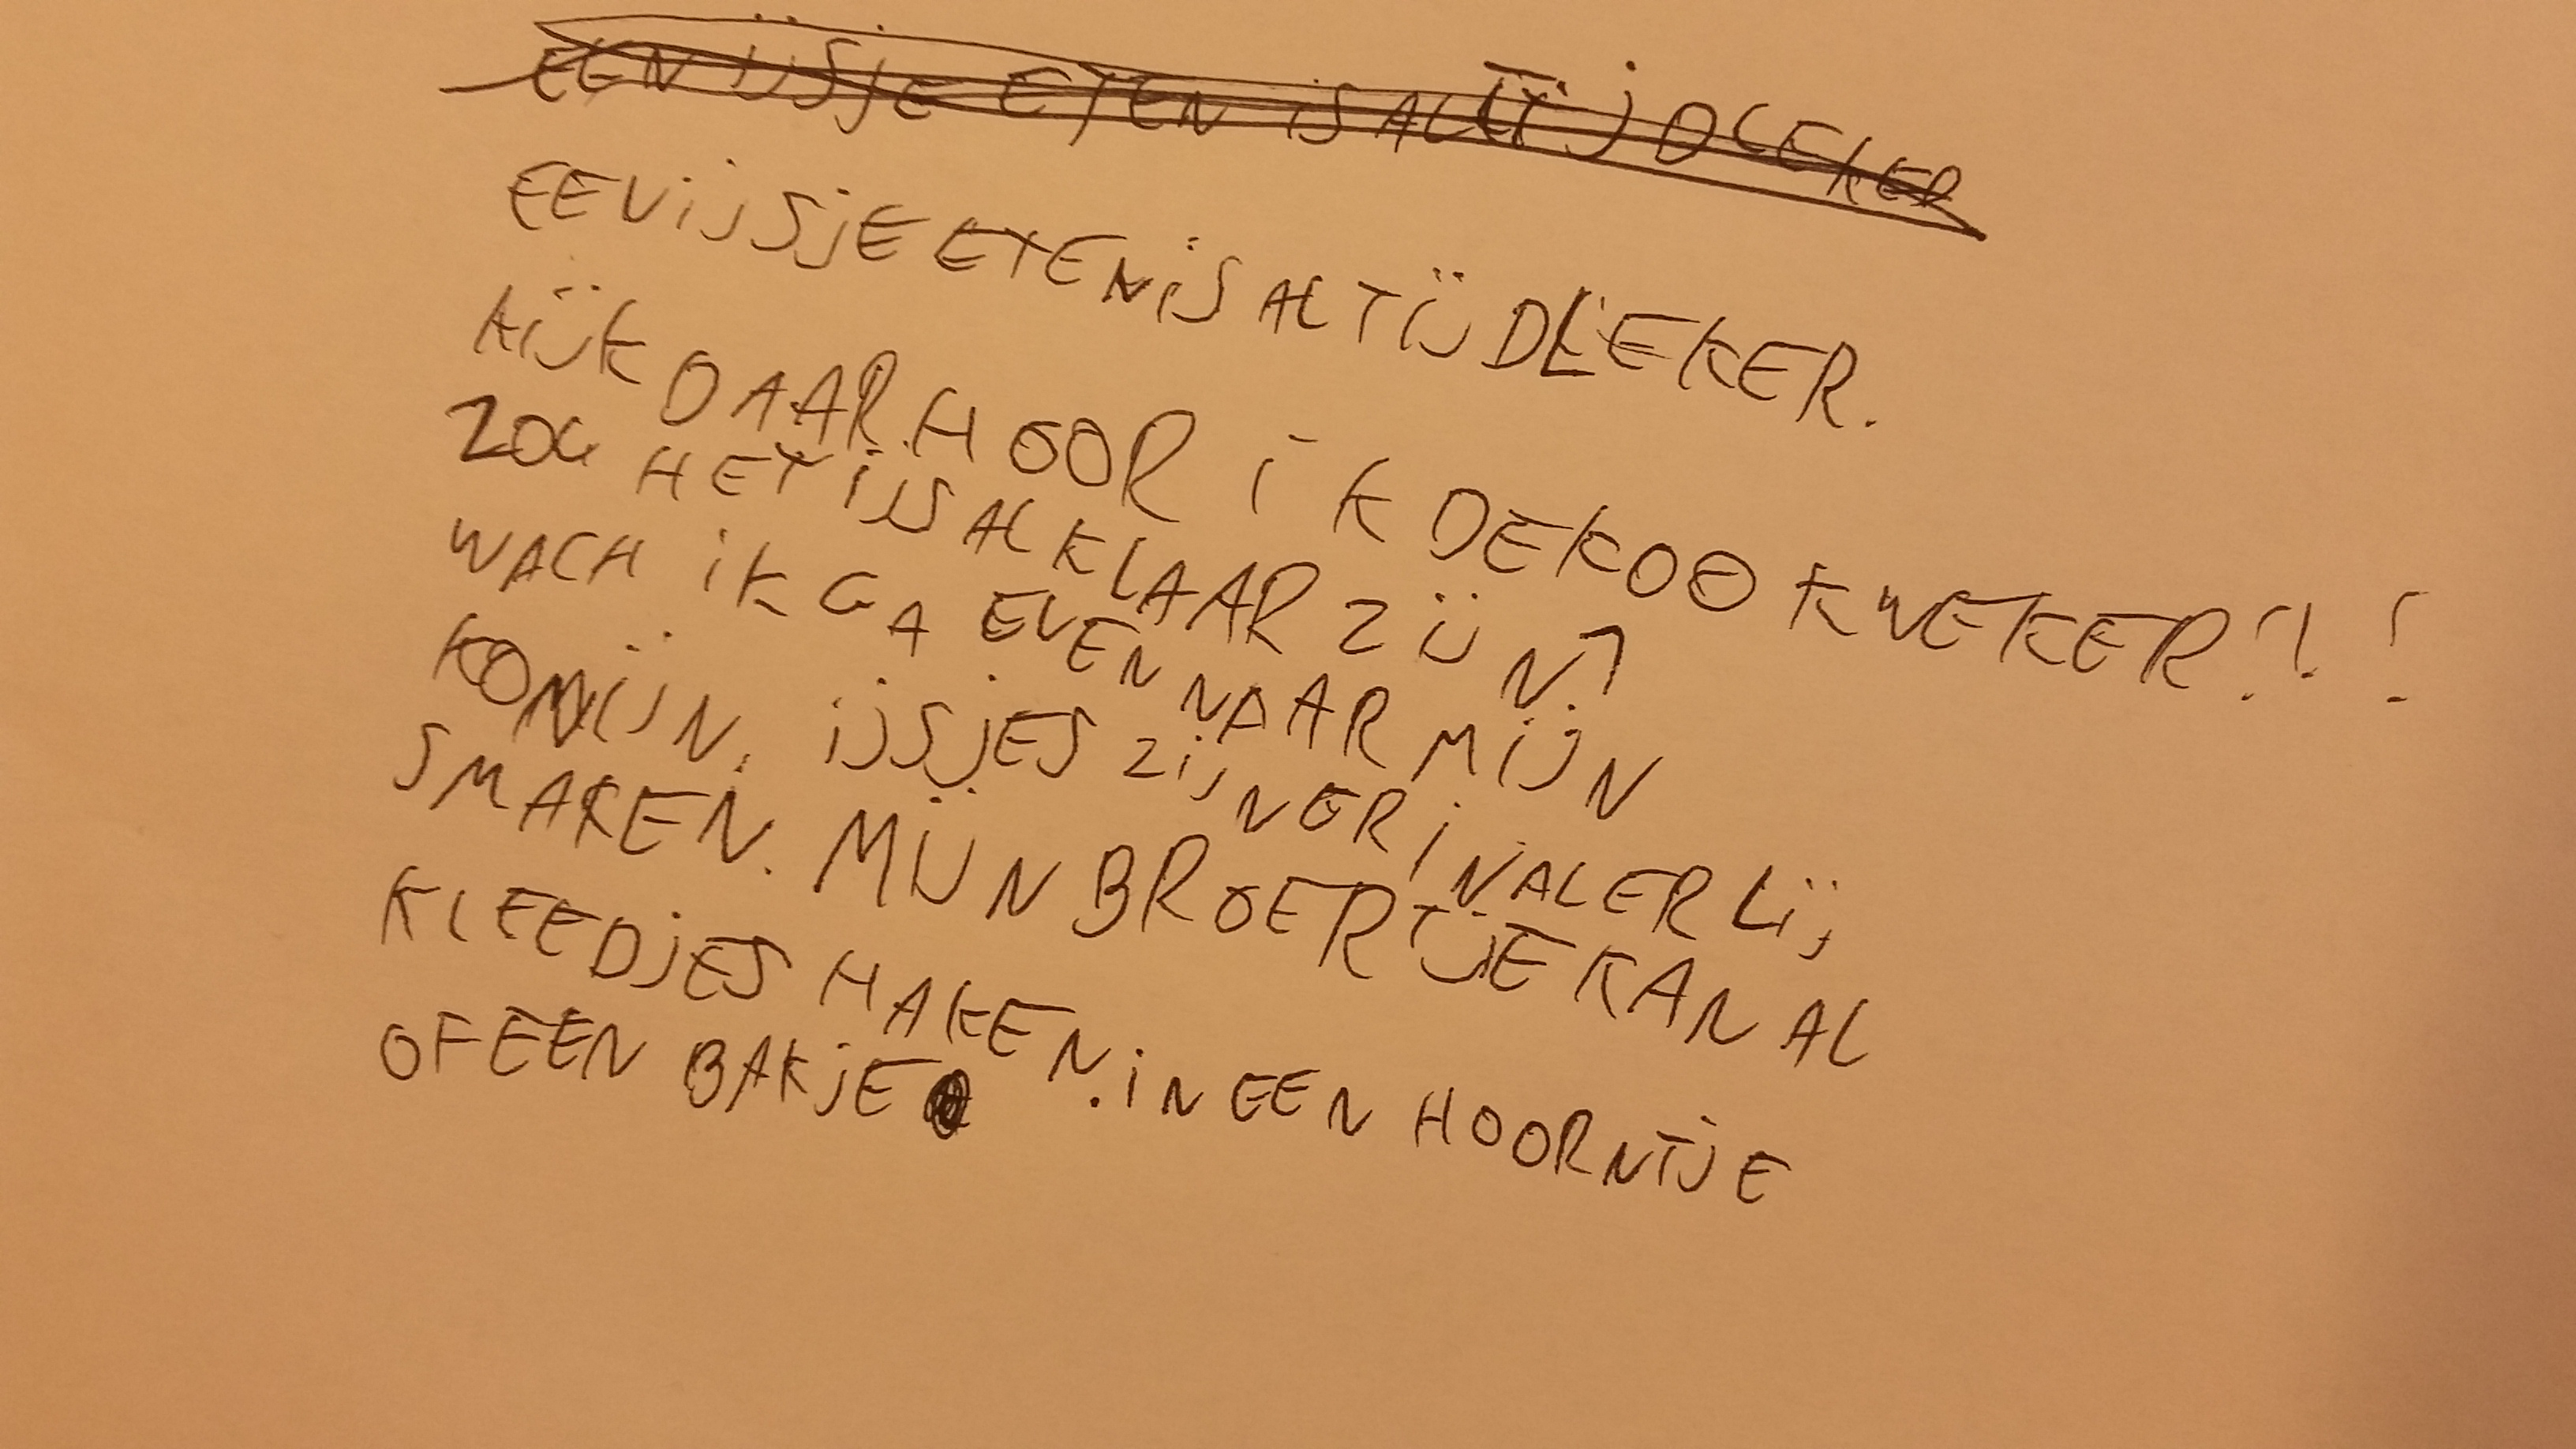 EEN IJSJE ETEN IS ALTIJD LEKER
EEN IJSJE ETEN IS ALTIJD LEKER.
KIJK DAAR HOOR IK DE KOOKWEKER!!!
ZOU HET IJS AL KLAAR ZIJN?
WACH IK GA EVEN NAAR MIJN
KONIJN. IJSJES ZIJN ER IN ALERLIJ
SMAKEN. MIJN BROERTJE KAN AL
KLEEDJES HAKEN. IN EEN HOORNTJE
OF EEN BAKJE